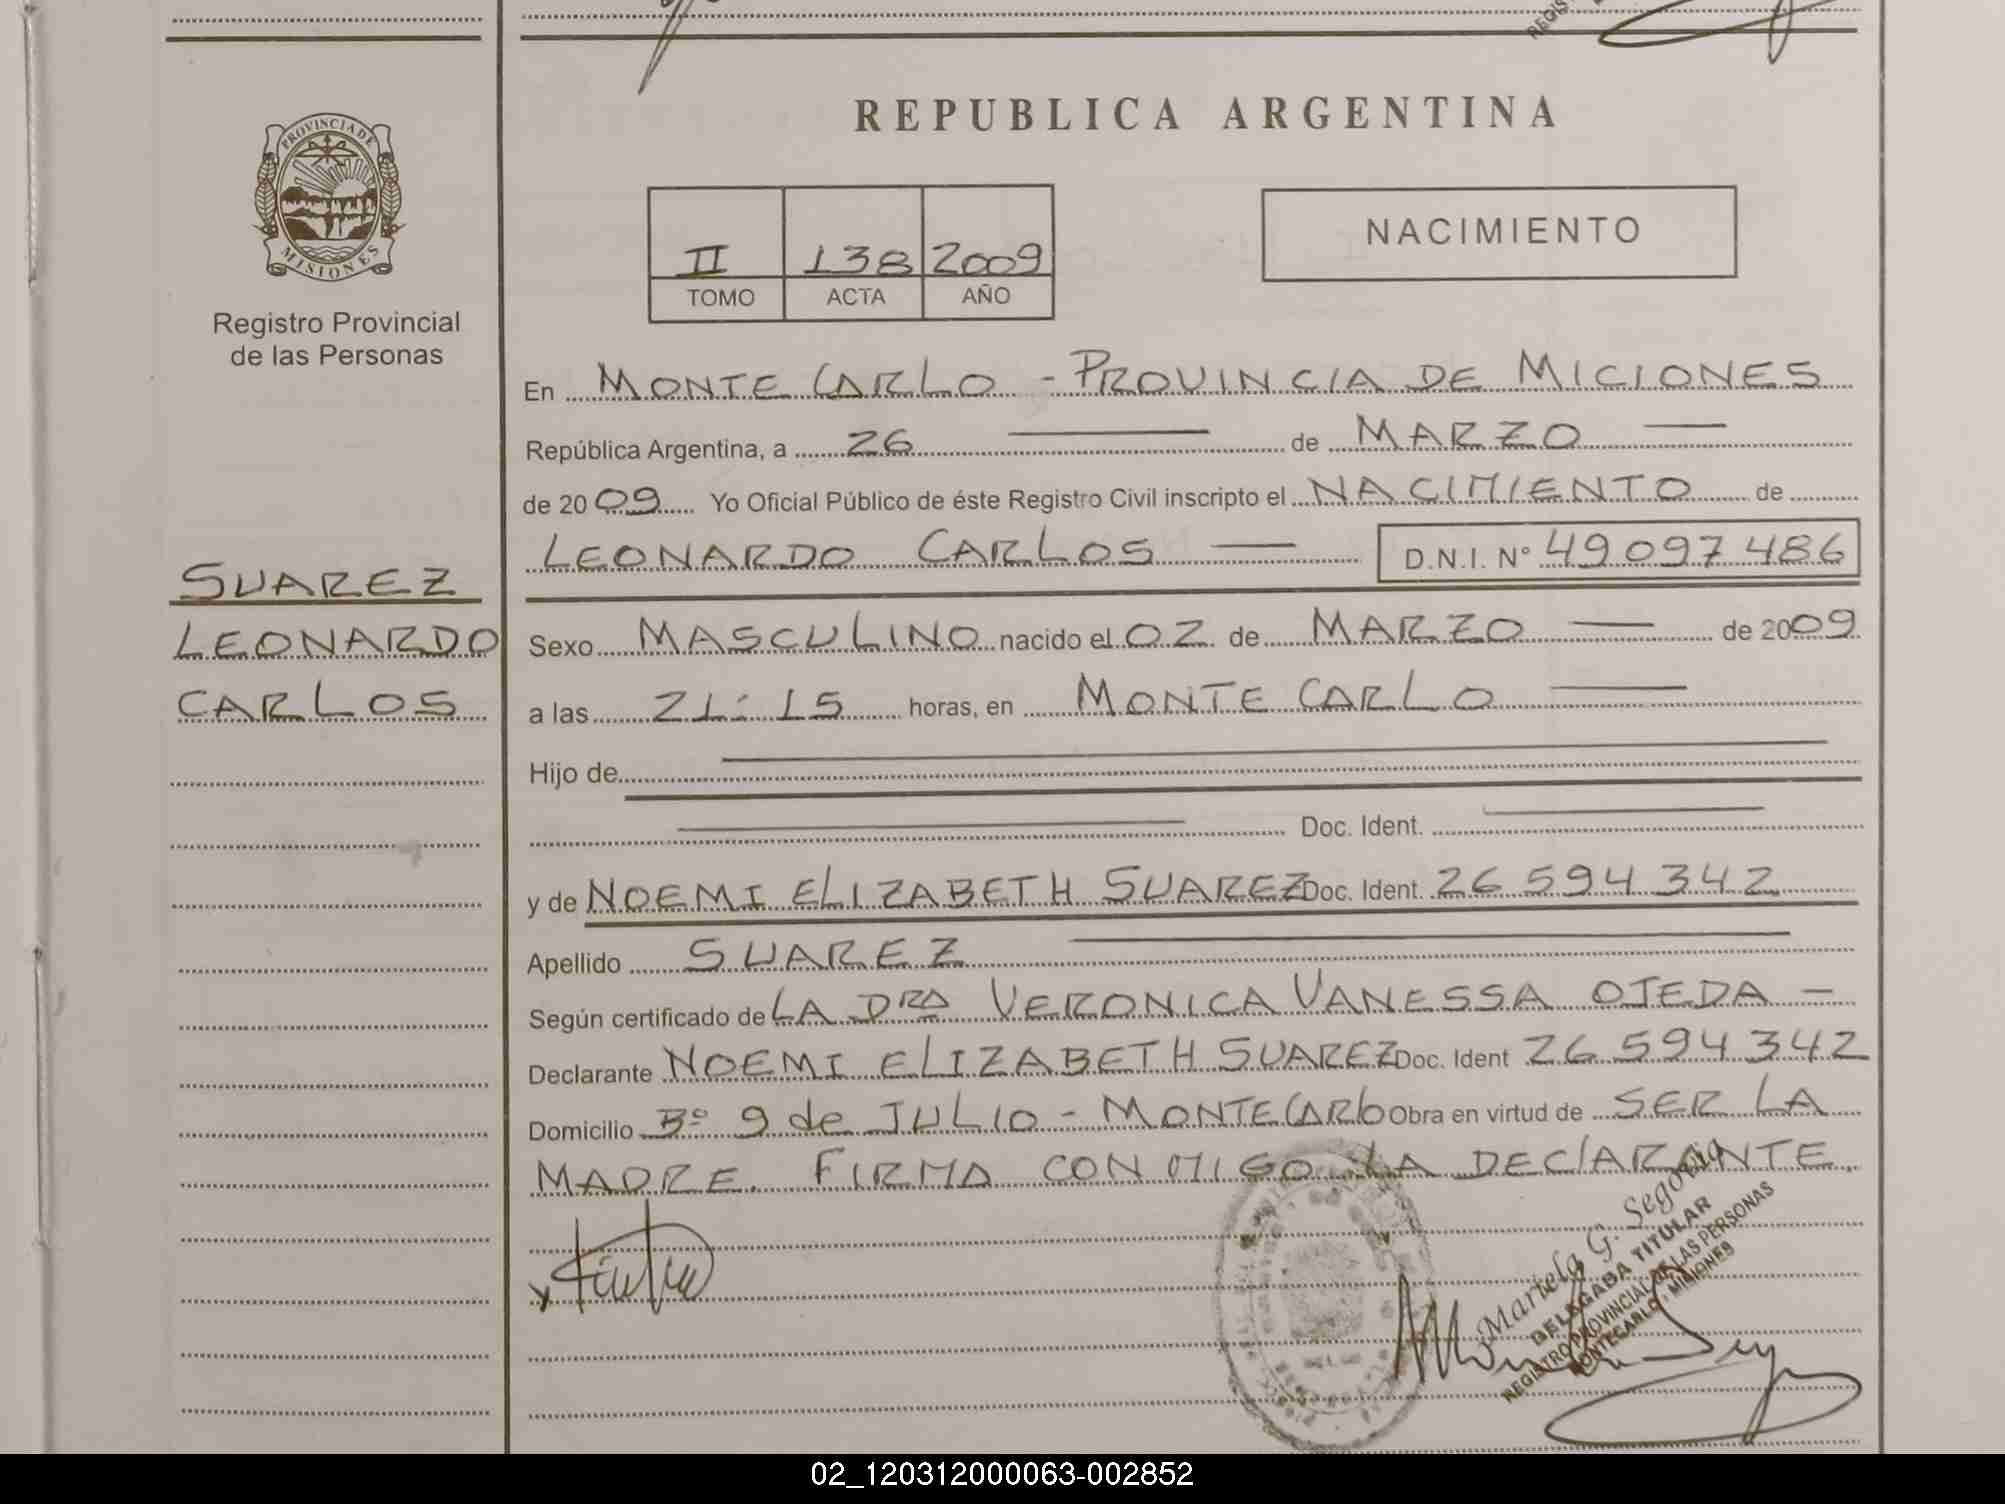 REPUBLICA ARGENTINA
PROVINCIA DE
MISIONES
Registro Provincial
de las Personas
II 138 2009
TOMO ACTA AÑO
NACIMIENTO
En MONTE CARLO - PROVINCIA DE MICIONES
República Argentina, a 26 de MARZO
de 2009 Yo Oficial Público de éste Registro Civil inscripto el NACIMIENTO de
LEONARDO CARLOS D.N.I. Nº 49 097 486
SUAREZ
LEONARDO
CARLOS
Sexo MASCULINO nacido el 02 de MARZO de 2009
a las 21:15 horas, en MONTE CARLO
Hijo de
Doc. Ident.
y de NOEMI ELIZABETH SUAREZ Doc. Ident. 26 594 342
Apellido SUAREZ
Según certificado de LA DRA VERONICA VANESSA OJEDA -
Declarante NOEMI ELIZABETH SUAREZ Doc. Ident 26 594 342
Domicilio Bº 9 de JULIO - MONTECARLO Obra en virtud de SER LA
MADRE. FIRMA CONMIGO LA DECLARANTE.
Mariela G. Segovia
DELEGADA TITULAR
REGISTRO PROVINCIAL DE LAS PERSONAS
MONTECARLO - MISIONES
02_120312000063-002852